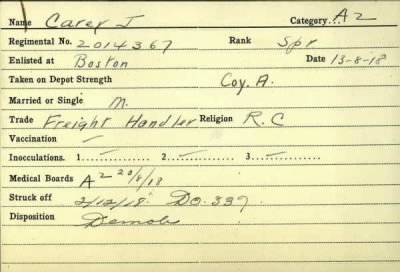 Name Carey J Category. A2
Regimental No. 2014367 Rank Spr
Enlisted at Boston Date 13-8-18
Taken on Depot Strength Coy. A.
Married or Single M.
Trade Freight Handler Religion R.C
Vaccination –
Inoculations. 1 – 2 – 3 –
Medical Boards A2 20/8/18
Struck off 2/12/18. D.O. 337
Disposition Demob